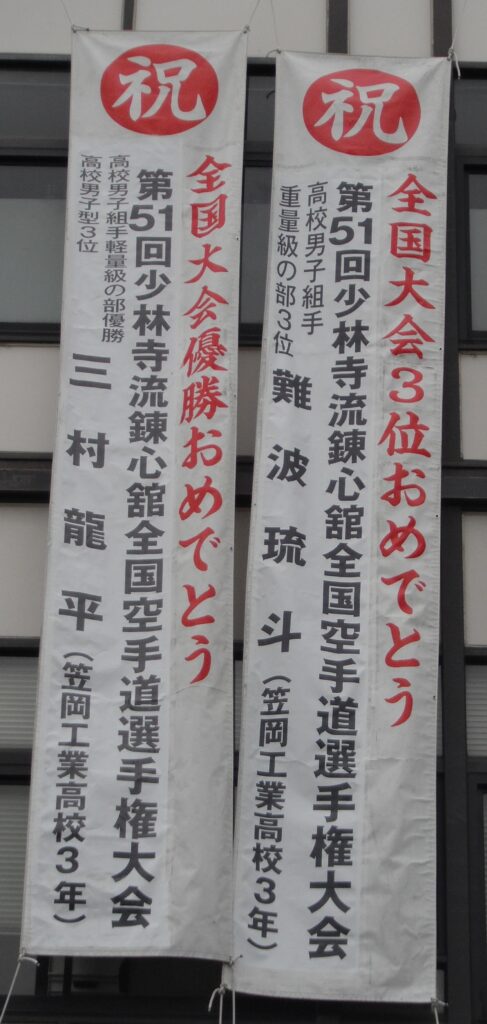 祝
全国大会3位おめでとう
第51回少林寺流錬心舘全国空手道選手権大会
高校男子組手
重量級の部3位
難波琉斗(笠岡工業高校3年)
祝
全国大会優勝おめでとう
第51回少林寺流錬心舘全国空手道選手権大会
高校男子組手軽量級の部優勝
高校男子型3位
三村龍平(笠岡工業高校3年)